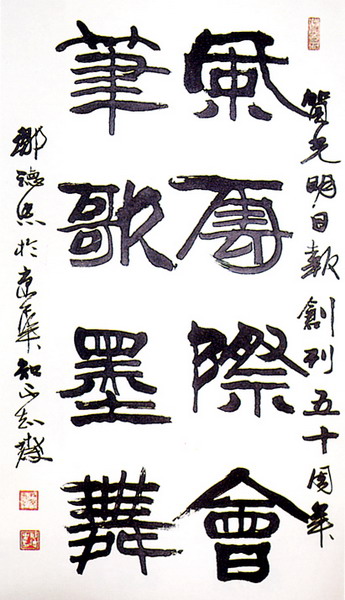 賀光明日報創刊五十周年
風雲際會
筆歌墨舞
鄒德忠於京華